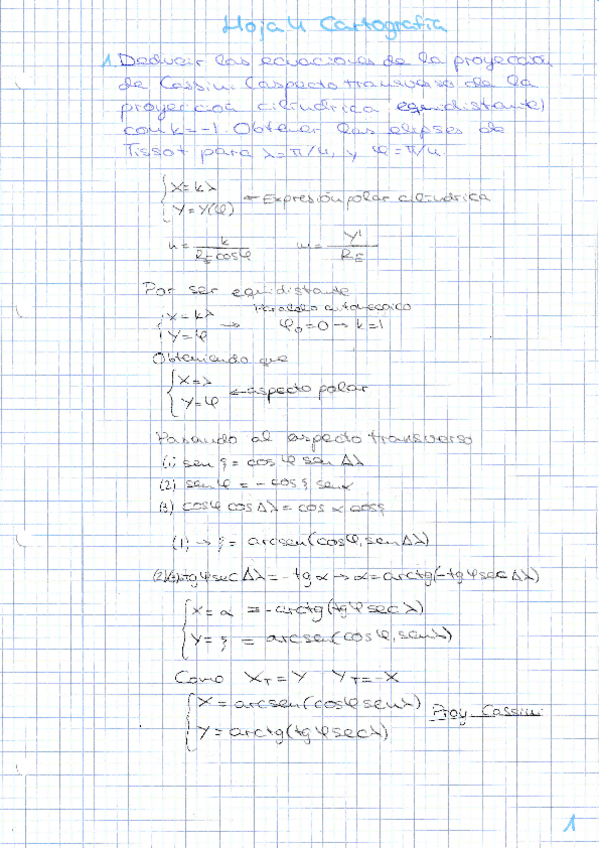 Hoja 4 Cartografía
1. Deducir las ecuaciones de la proyección
de Cassini (aspecto transverso de la
proyección cilíndrica equidistante)
con k=-1. Obtener las elipses de
Tissot para λ=π/4, y φ=π/4.
{ X=kλ
Y=Y(φ) ← Expresión polar cilíndrica
h = k / R_E cosφ    Y' / R_E
Por ser equidistante
{ X=kλ    automecoico
Y=φ →    φ₀=0 → k=1
Obteniendo que
{ X=λ
Y=φ ← aspecto polar
Pasando al aspecto transverso
(1) sen ξ = cos φ sen Δλ
(2) sen φ = - cos ξ sen α
(3) cos φ cos Δλ = cos α cos ξ
(1) → ξ = arcsen(cos φ, sen Δλ)
tg φ sec Δλ = - tg α → α = arctg(-tg φ sec Δλ)
{ X = α = -arctg(tg φ sec λ)
Y = ξ = arcsen(cos φ, sen λ)
Como X_T = Y    Y_T = -X
{ X = arcsen(cos φ sen λ)    Proy. Cassini
Y = arctg(tg φ sec λ)
1